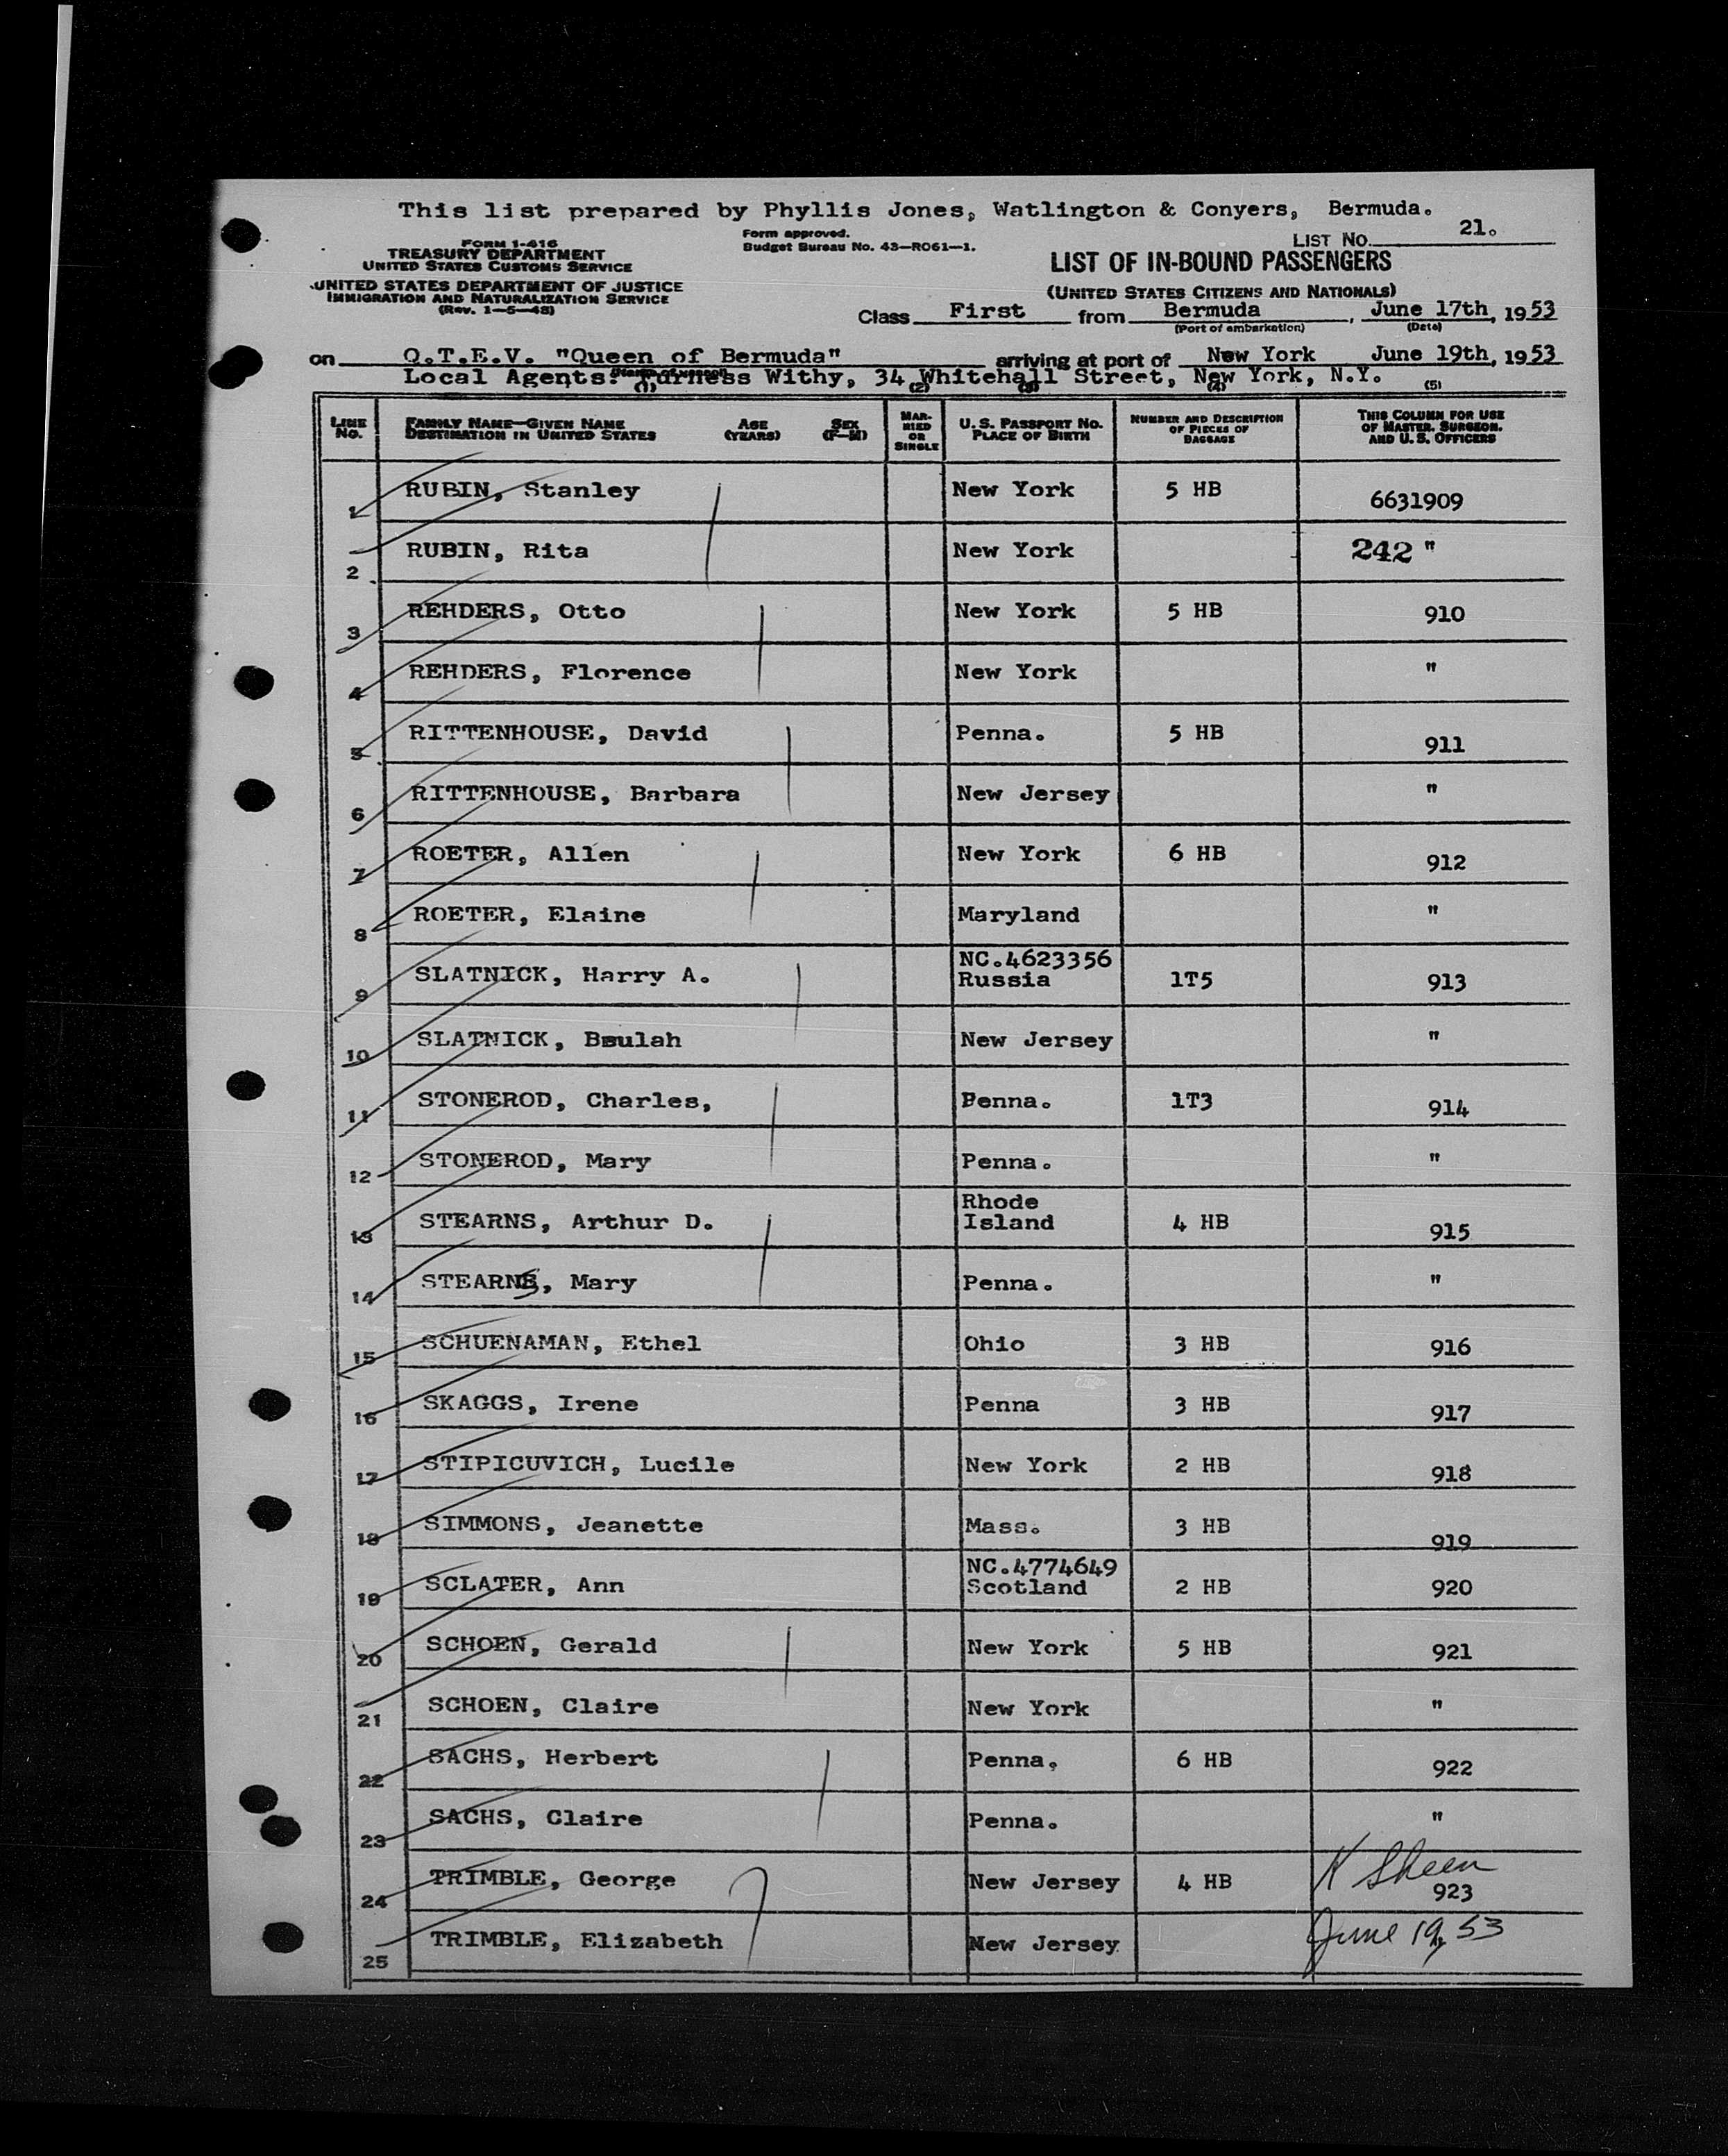 This list prepared by Phyllis Jones, Watlington & Conyers, Bermuda.
FORM I-416
TREASURY DEPARTMENT
UNITED STATES CUSTOMS SERVICE
UNITED STATES DEPARTMENT OF JUSTICE
IMMIGRATION AND NATURALIZATION SERVICE
(Rev. 1-5-48)
Form approved.
Budget Bureau No. 43-RO61-1.
LIST NO. 21.
LIST OF IN-BOUND PASSENGERS
(UNITED STATES CITIZENS AND NATIONALS)
Class First from Bermuda, June 17th, 1953
(Port of embarkation) (Date)
on Q.T.E.V. "Queen of Bermuda" arriving at port of New York June 19th, 1953
Local Agents: Furness Withy, 34 Whitehall Street, New York, N.Y.
(1) (2) (3) (4) (5)
LINE No. FAMILY NAME—GIVEN NAME DESTINATION IN UNITED STATES AGE (YEARS) SEX (F-M) MARRIED OR SINGLE U. S. PASSPORT NO. PLACE OF BIRTH NUMBER AND DESCRIPTION OF PIECES OF BAGGAGE THIS COLUMN FOR USE OF MASTER, SURGEON, AND U. S. OFFICERS
1 RUBIN, Stanley New York 5 HB 6631909
2 RUBIN, Rita New York 242 "
3 REHDERS, Otto New York 5 HB 910
4 REHDERS, Florence New York "
5 RITTENHOUSE, David Penna. 5 HB 911
6 RITTENHOUSE, Barbara New Jersey "
7 ROETER, Allen New York 6 HB 912
8 ROETER, Elaine Maryland "
NC.4623356
9 SLATNICK, Harry A. Russia 1T5 913
10 SLATNICK, Beulah New Jersey "
11 STONEROD, Charles, Penna. 1T3 914
12 STONEROD, Mary Penna. "
Rhode
13 STEARNS, Arthur D. Island 4 HB 915
14 STEARNS, Mary Penna. "
15 SCHUENAMAN, Ethel Ohio 3 HB 916
16 SKAGGS, Irene Penna 3 HB 917
17 STIPICUVICH, Lucile New York 2 HB 918
18 SIMMONS, Jeanette Mass. 3 HB 919
NC.4774649
19 SCLATER, Ann Scotland 2 HB 920
20 SCHOEN, Gerald New York 5 HB 921
21 SCHOEN, Claire New York "
22 SACHS, Herbert Penna, 6 HB 922
23 SACHS, Claire Penna. "
K Sheen
24 TRIMBLE, George New Jersey 4 HB 923
25 TRIMBLE, Elizabeth New Jersey June 19, 53